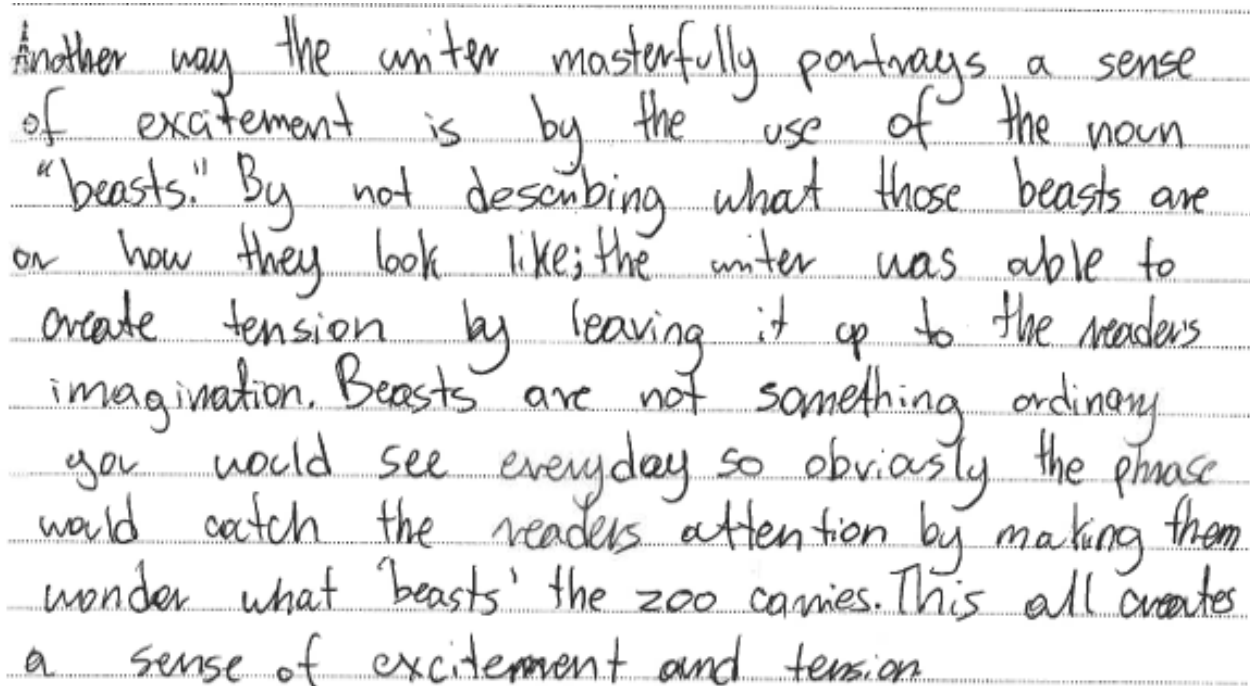 Another way the writer masterfully portrays a sense
of excitement is by the use of the noun
"beasts." By not describing what those beasts are
or how they look like; the writer was able to
create tension by leaving it up to the readers
imagination. Beasts are not something ordinary
you would see everyday so obviously the phrase
would catch the readers attention by making them
wonder what 'beasts' the zoo carries. This all creates
a sense of excitement and tension